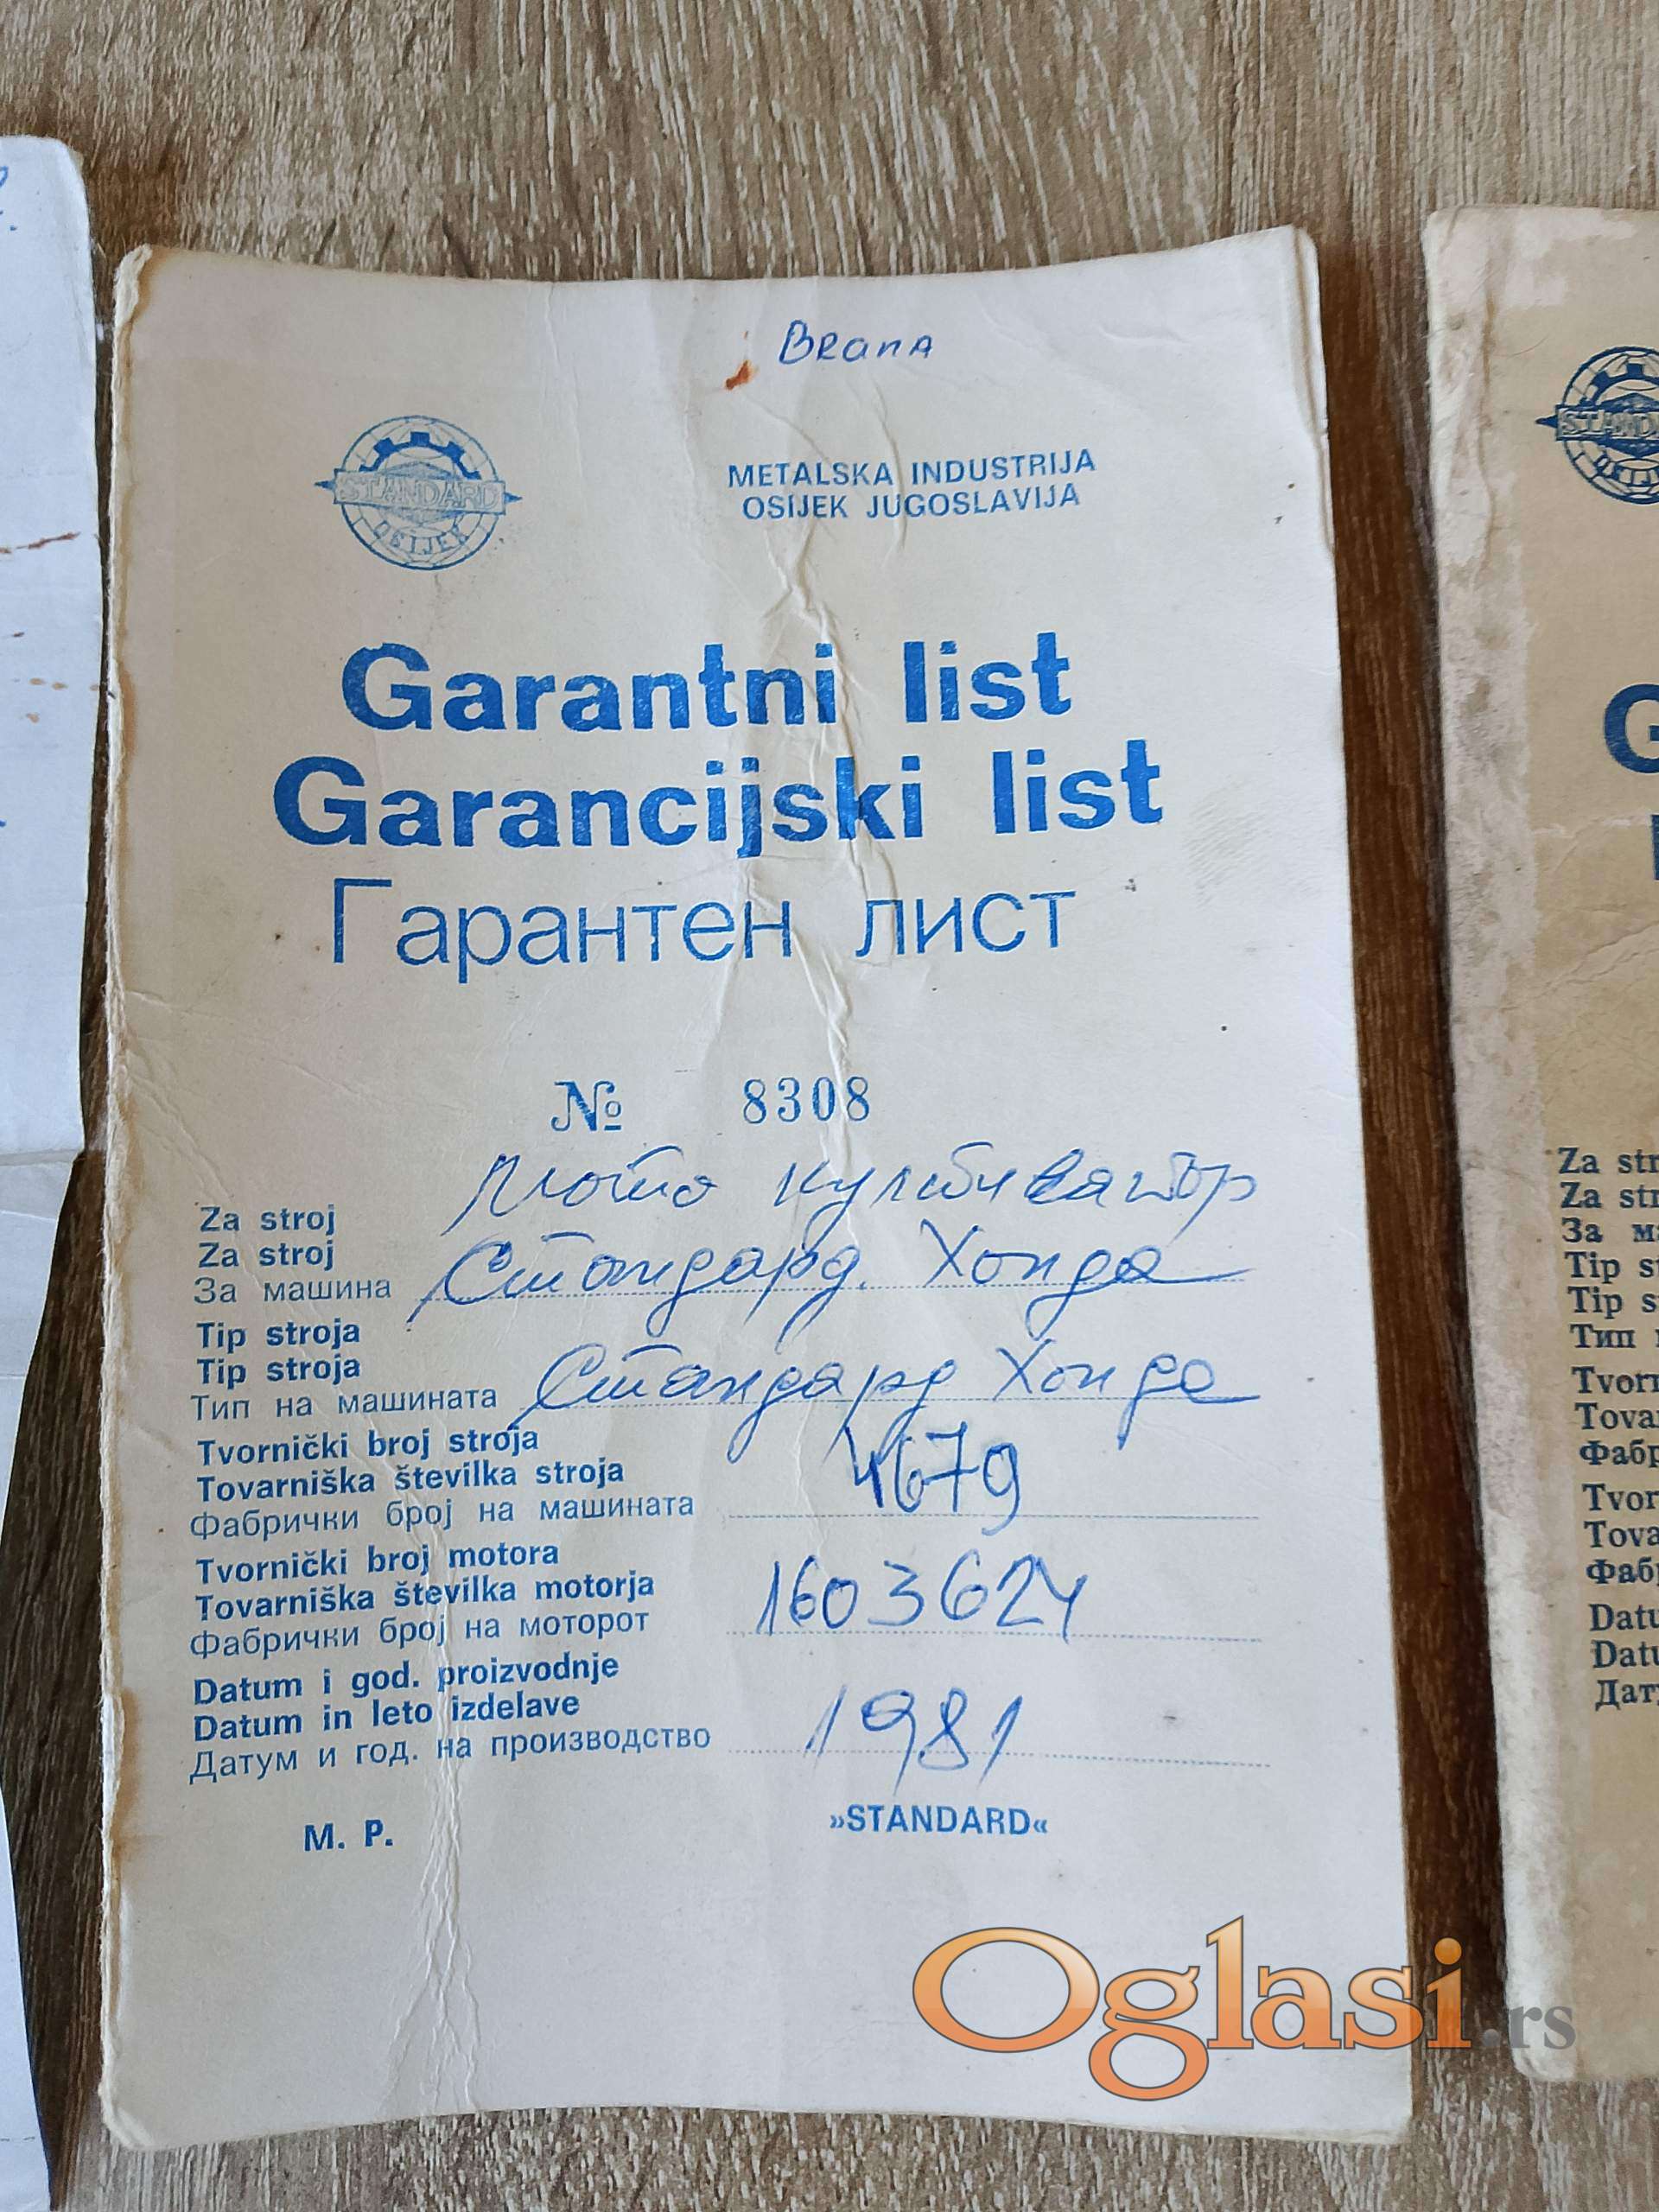 Brana
STANDARD
OSIJEK
METALSKA INDUSTRIJA
OSIJEK JUGOSLAVIJA
Garantni list
Garancijski list
Гарантен лист
№ 8308
Мото култиватор
Za stroj
Za stroj
За машина Стандард. Хонда
Tip stroja
Tip stroja
Тип на машината Стандард Хонда
Tvornički broj stroja
Tovarniška številka stroja 4679
Фабрички број на машината
Tvornički broj motora
Tovarniška številka motorja 1603624
Фабрички број на моторот
Datum i god. proizvodnje
Datum in leto izdelave 1981
Датум и год. на производство
M. P. »STANDARD«
Oglasi.rs
STANDA
G
Za str
Za str
За ма
Tip s
Tip s
Тип
Tvorn
Tovar
Фабр
Tvor
Tova
Фаб
Datu
Datu
Дат